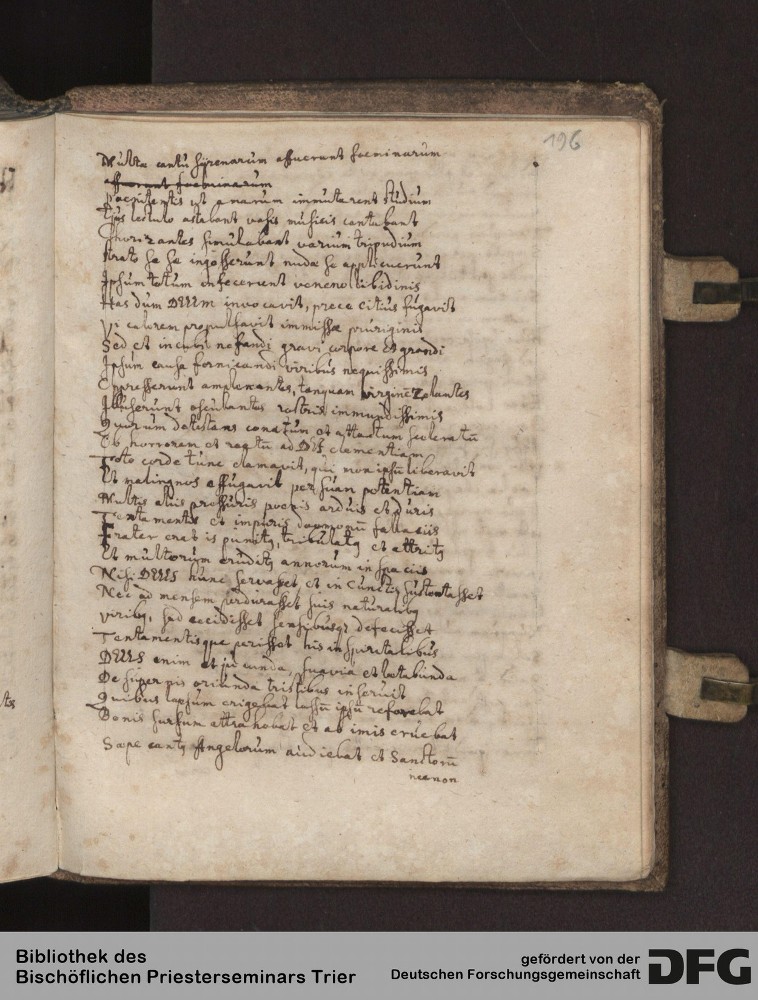 196
Multae cantu Syrenarum affuerunt foeminarum
affuerunt foeminarum
Poenitentis ut anarum immutarent studium
Ejus lectulo astabant vasis musicis cantabant
Chorizantes simulabant varium tripudium
Strato se se ingesserunt nudae se applicuerunt
Ipsum totum infecerunt veneno libidinis
Has dum DEUM invocavit, prece citius fugavit
Vi calorem propulsavit immissae pruriginis
Sed et incubi nefandi gravi corpore et grandi
Ipsum causa fornicandi viribus nequissimis
Oppresserunt amplexantes, tanquam virginē zelantes
Illuserunt osculantes rostris immundissimis
Quorum detestans conatum et attactum sceleratū
Ob horrorem et reatū ad DEI clementiam
Toto corde tunc clamavit, qui mox ipsū liberavit
Et malingnos effugavit per suam potentiam
Multis aliis pressuris poenis arduis et duris
Tentamentis et impuris daemonū fallaciis
Frater erat is punitꝯ, tribulatꝯ et attritꝯ
Et multorum eruditꝯ annorum in spaciis
Nisi DEUS hunc servasset et in cunctis sustentasset
Nec ad mensem perdurasset suis naturalibꝯ
viribꝯ, sed cecidisset sensibusqꝫ defecisset
Tentamentisque perisset his in spiritalibus
DEUS enim et jucunda, suavia et letabunda
De supernis oriunda tristibus inseruit
Quibus lapsum erigebat lassū ipsū refovebat
Donis sursum attrahebat et ab imis eruebat
Saepe cantꝯ Angelorum audiebat et Sanctorū
necnon
Bibliothek des
Bischöflichen Priesterseminars Trier
gefördert von der
Deutschen Forschungsgemeinschaft
DFG